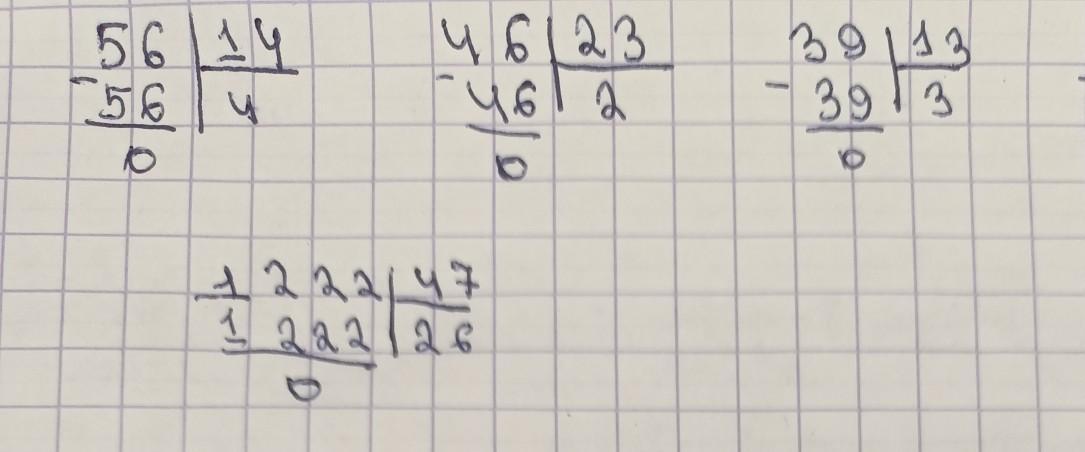 56 14 46 23 39 13
- 56 4 - 46 2 - 39 3
0 0 0
1222 47
1222 26
0